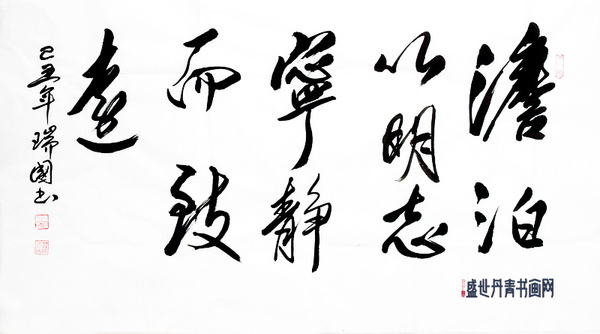 澹泊
以明志
寧静
而致
遠
己丑年瑞國书
盛世丹青书画网